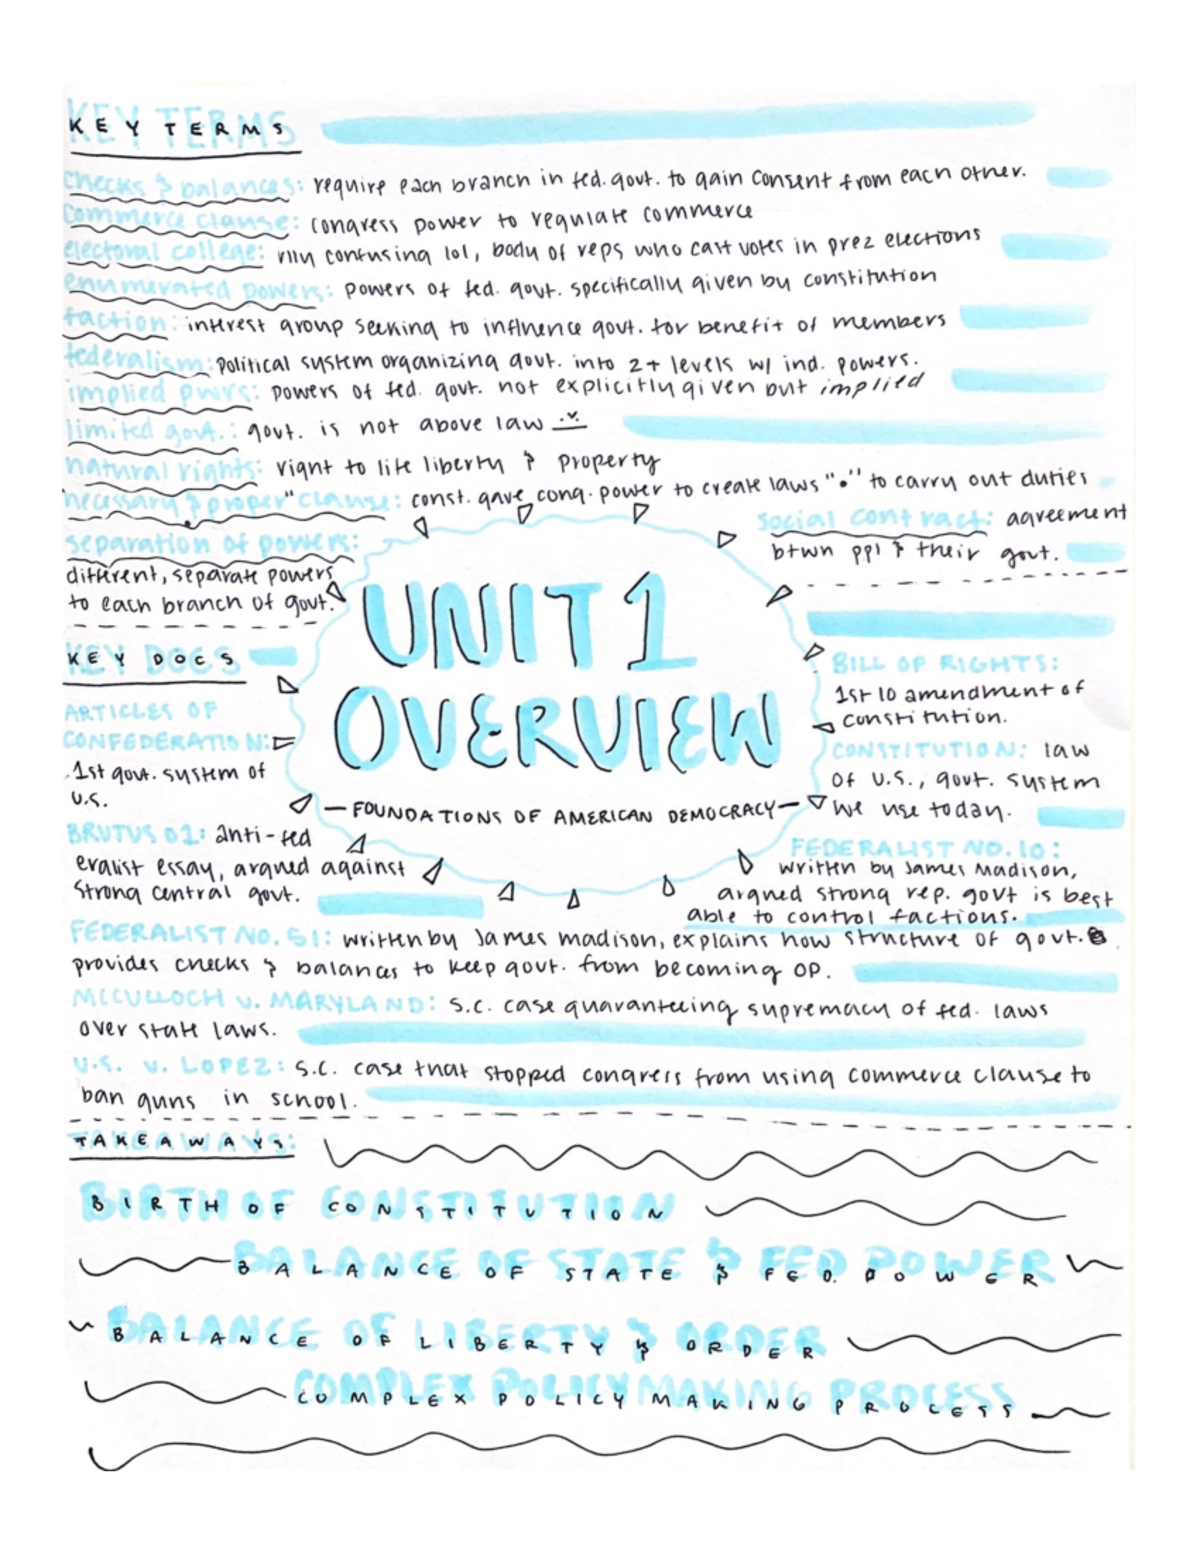 KEY TERMS
checks & balances: require each branch in fed. govt. to gain consent from each other.
commerce clause: congress power to regulate commerce
electoral college: rlly confusing lol, body of reps who cast votes in prez elections
enumerated powers: powers of fed. govt. specifically given by constitution
faction: interest group seeking to influence govt. for benefit of members
federalism: political system organizing govt. into 2+ levels w/ ind. powers.
implied pwrs: powers of fed. govt. not explicitly given but implied
limited govt.: govt. is not above law
natural rights: right to life liberty & property
necessary & proper" clause: const. gave cong. power to create laws "•" to carry out duties
separation of powers:
different, separate powers
to each branch of govt.
social contract: agreement
btwn ppl & their govt.
UNIT 1
OVERVIEW
—FOUNDATIONS OF AMERICAN DEMOCRACY—
KEY DOCS
ARTICLES OF
CONFEDERATION:
1st govt. system of
U.S.
BRUTUS 01: anti-fed
eralist essay, argued against
strong central govt.
BILL OF RIGHTS:
1st 10 amendment of
constitution.
CONSTITUTION: law
of U.S., govt. system
we use today.
FEDERALIST NO. 10:
written by James Madison,
argued strong rep. govt is best
able to control factions.
FEDERALIST NO. 51: written by James madison, explains how structure of govt.
provides checks & balances to keep govt. from becoming OP.
MCCULLOCH v. MARYLAND: S.C. case guaranteeing supremacy of fed. laws
over state laws.
U.S. v. LOPEZ: S.C. case that stopped congress from using commerce clause to
ban guns in school.
TAKEAWAYS:
BIRTH OF CONSTITUTION
BALANCE OF STATE & FED. POWER
BALANCE OF LIBERTY & ORDER
COMPLEX POLICY MAKING PROCESS